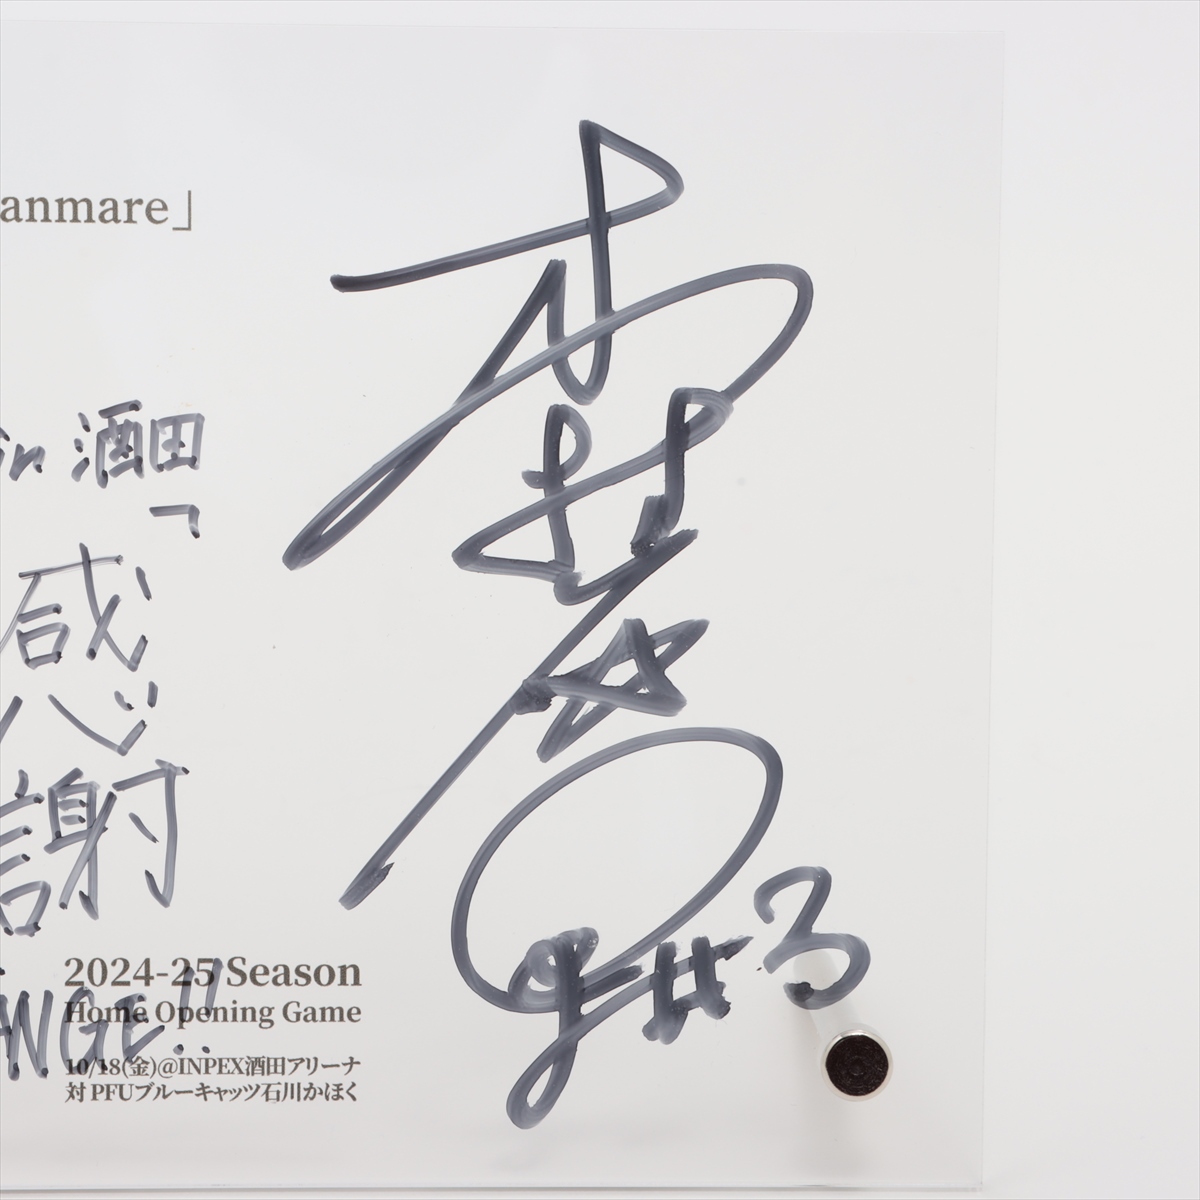 anmare」
in 酒田
感
謝
NGE!!
#3
2024-25 Season
Home Opening Game
10/18(金)@INPEX酒田アリーナ
対 PFUブルーキャッツ石川かほく